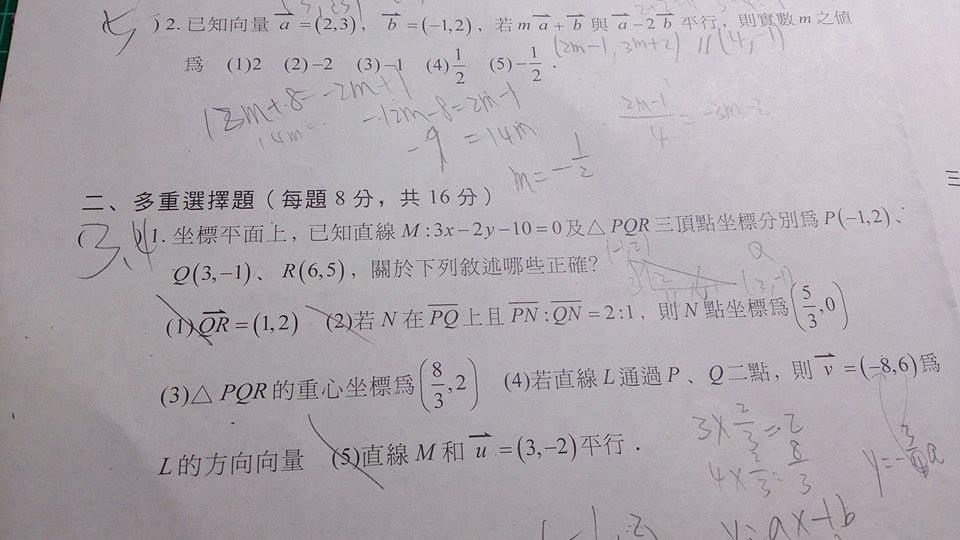 5
) 2. 已知向量 a = (2,3), b = (-1,2), 若 m a + b 與 a - 2 b 平行, 則實數 m 之值
(2m-1, 3m+2) // (4, -1)
為 (1) 2 (2) -2 (3) -1 (4) 1/2 (5) -1/2 .
-2m+1
14m = -12m-8=2m-1
2m-1/4 = -3m-2
-9 = 14m
m = -1/2
二、多重選擇題 (每題 8 分, 共 16 分)
三
( 3,4 ) 1. 坐標平面上, 已知直線 M : 3x-2y-10=0 及 △ PQR 三頂點坐標分別為 P(-1,2)、
Q(3,-1)、R(6,5), 關於下列敘述哪些正確?
Q
(3,-1)
(1) QR = (1,2) (2) 若 N 在 PQ 上且 PN : QN = 2:1, 則 N 點坐標為 (5/3, 0)
(3) △ PQR 的重心坐標為 (8/3, 2) (4) 若直線 L 通過 P、Q 二點, 則 v = (-8,6) 為
L 的方向向量 (5) 直線 M 和 u = (3,-2) 平行 .
3 × 2/3 = 2
4 × 2/3 = 8/3
(-1, 2)
y = ax+b